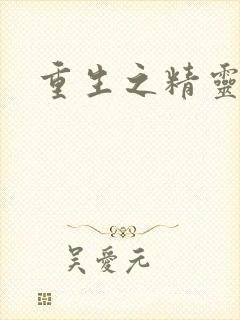 重生之精靈
吳愛元